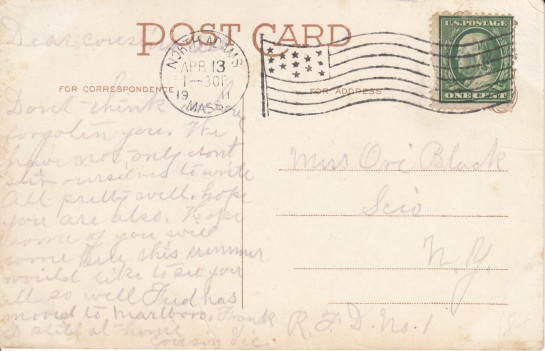 POST CARD
Dear cousin
NORTH ADAMS
APR 13
1-30P
1911
MASS.
U.S. POSTAGE
ONE CENT
FOR CORRESPONDENCE
FOR ADDRESS
Don't think
forgotten you. We
have not only don't
stir ourselves to write
All pretty well. hope
you are also. Hope
some of you will
come this summer
would like to see you
all so well Fred has
moved to Marlboro. Frank
is still at home
Cousin Vic.
Miss Ori Black
Scio
N.Y.
R.F.D. No. 1